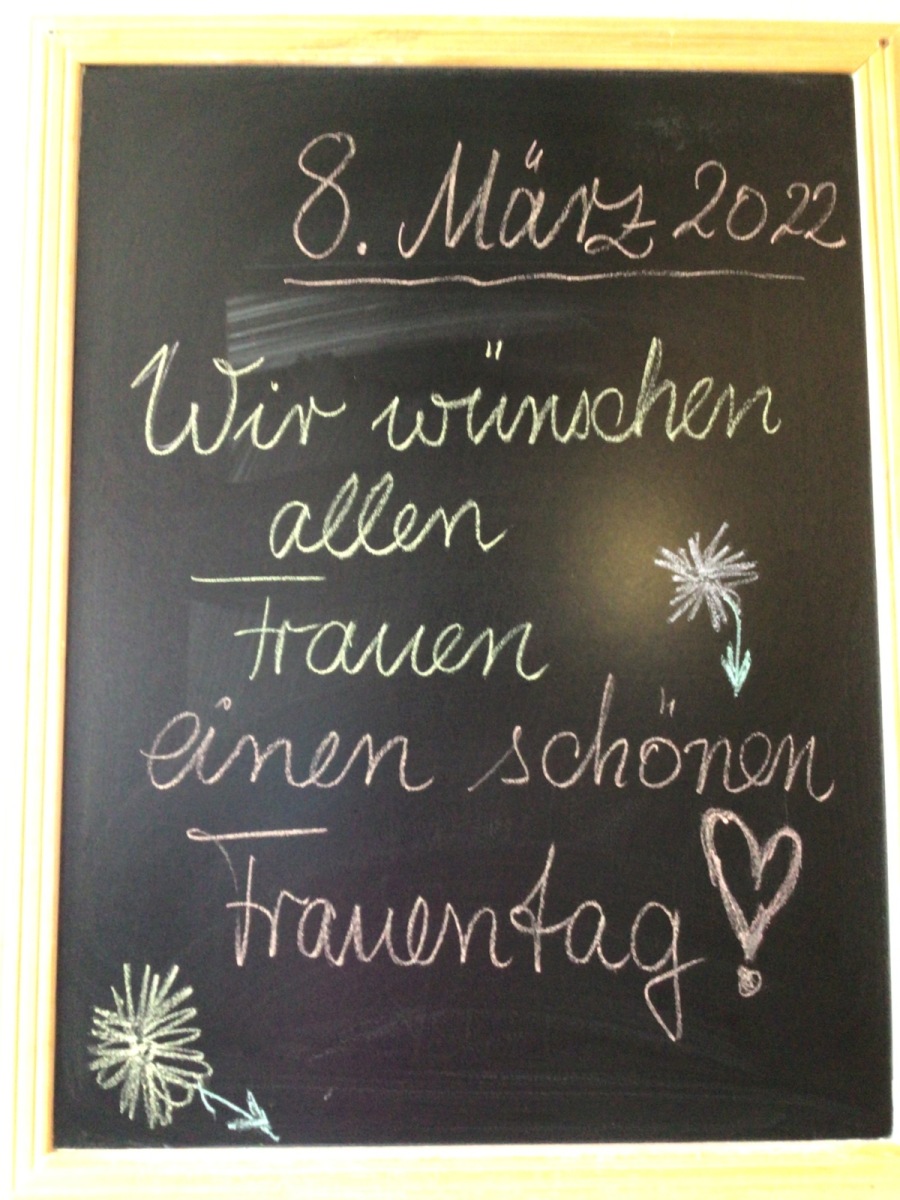 8. März 2022
Wir wünschen
allen
Frauen
einen schönen
Frauentag!